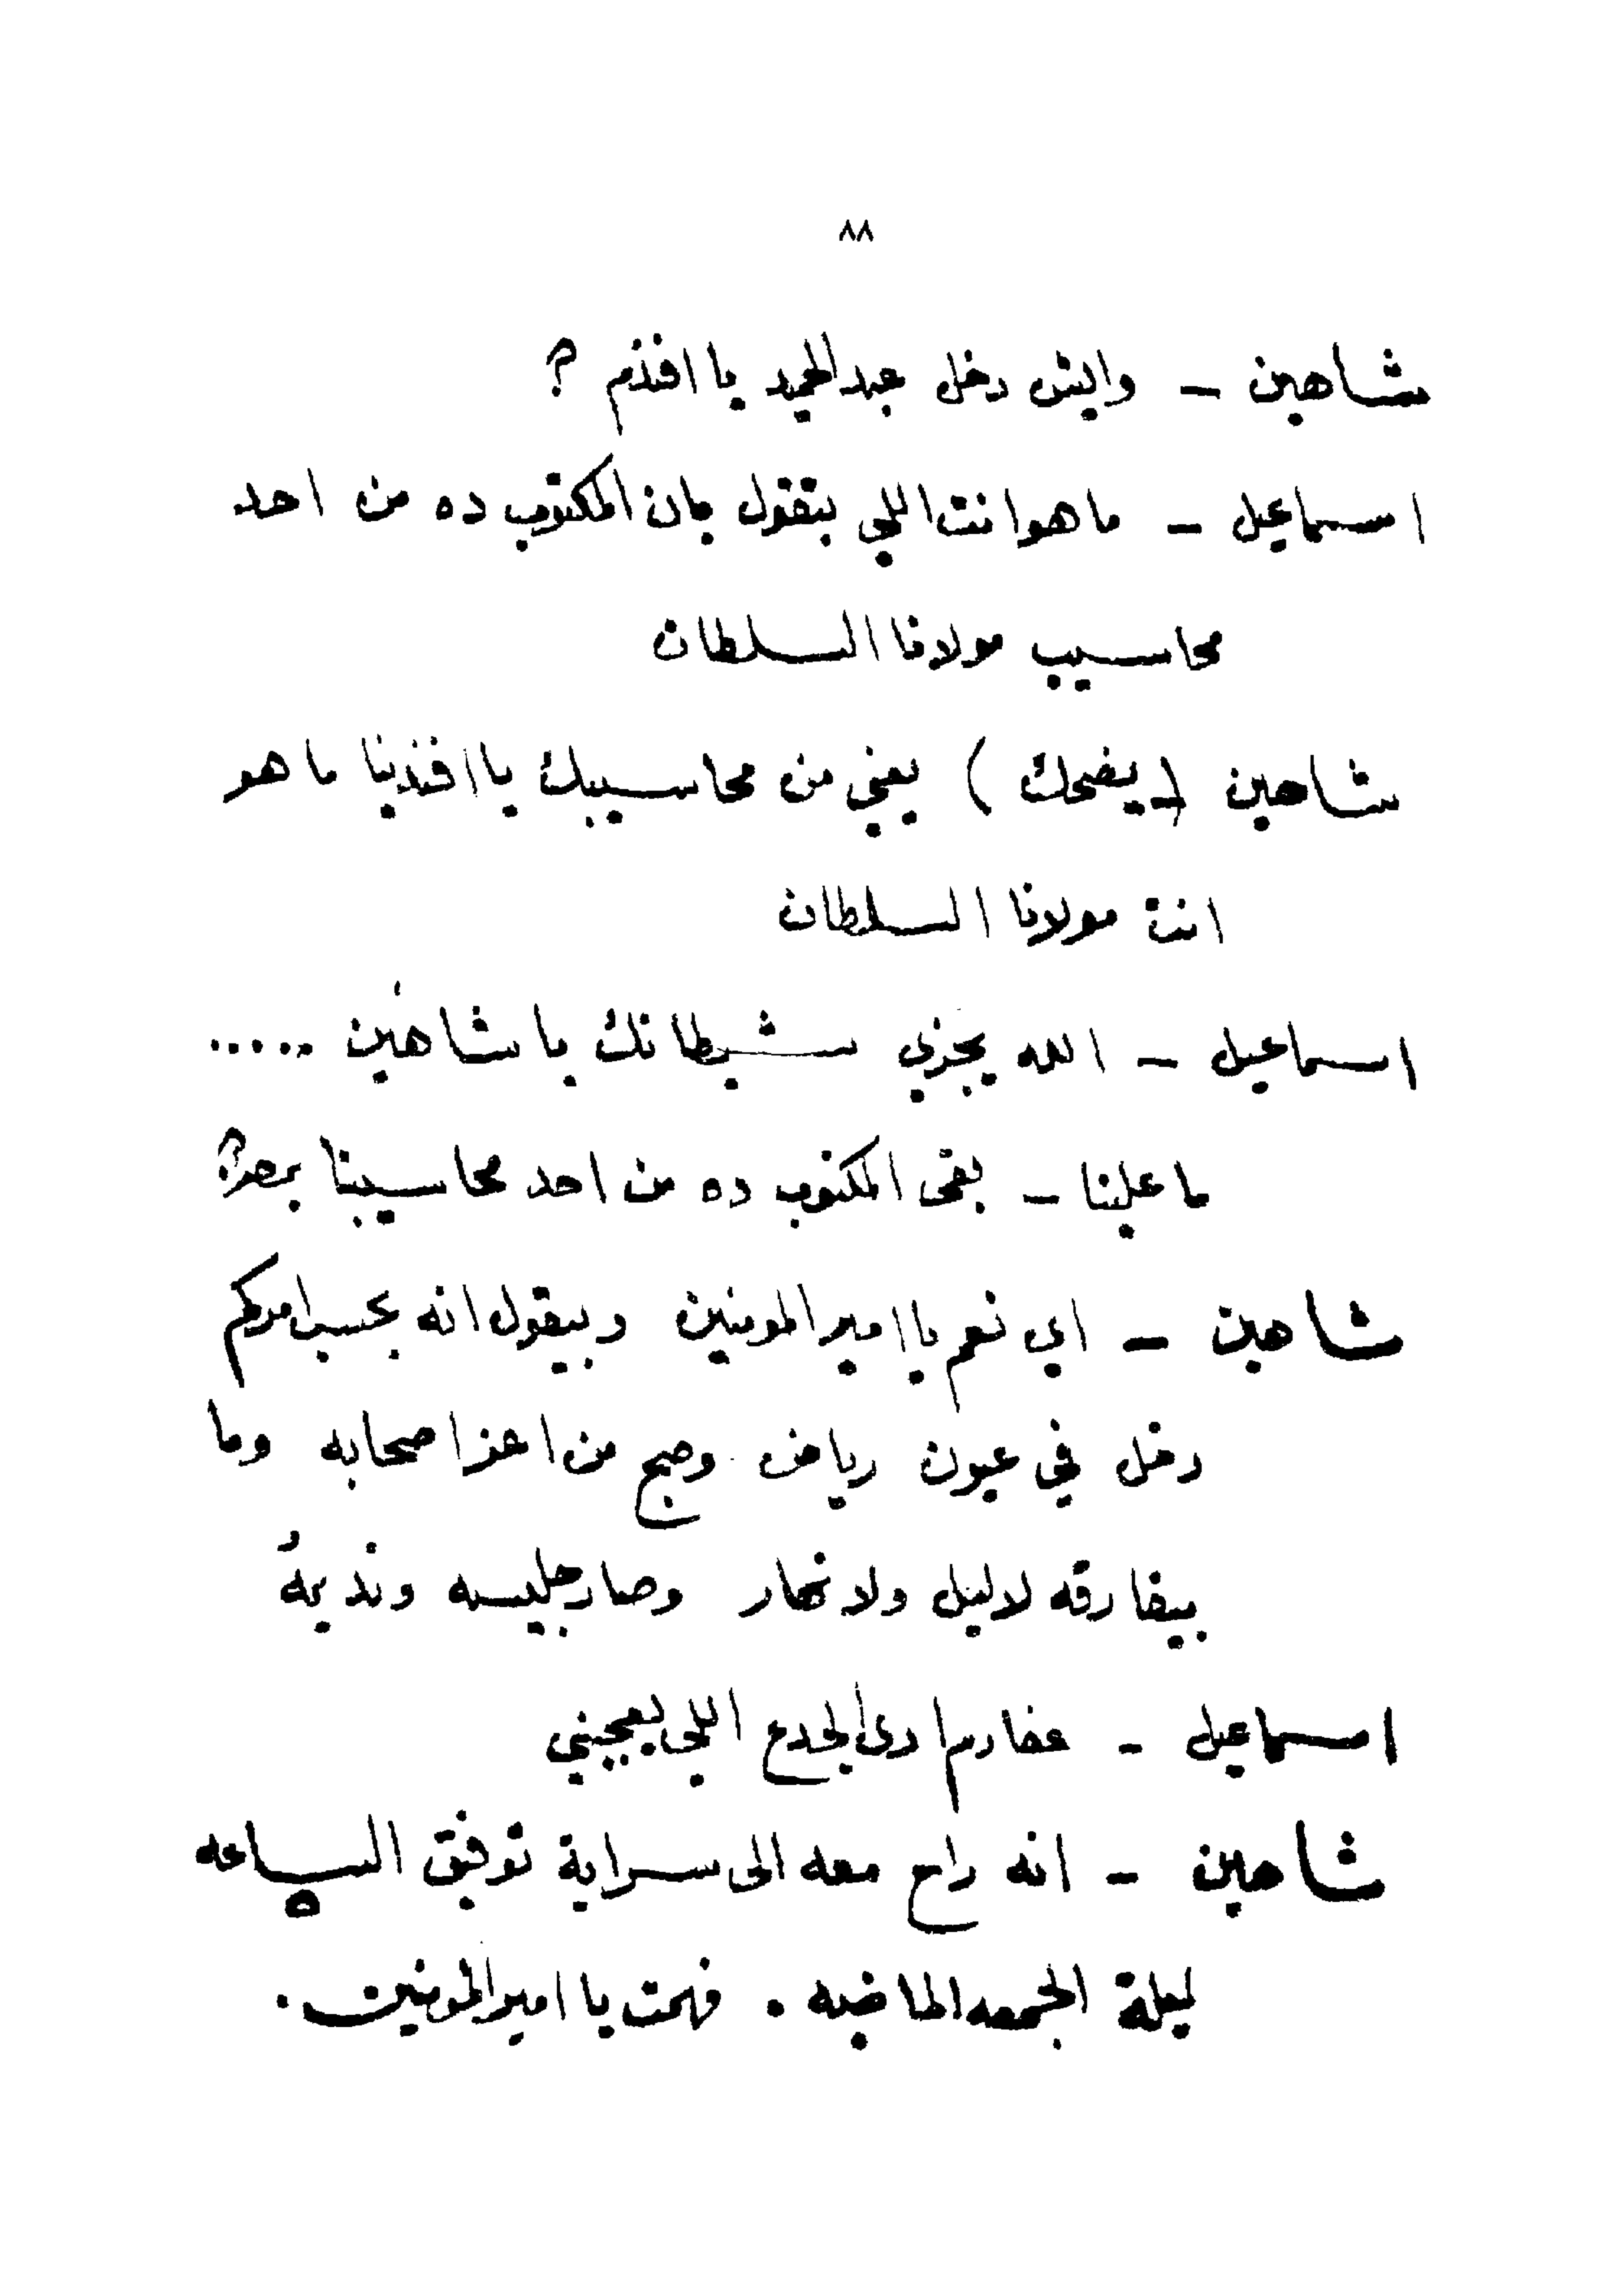 ٨٨
شاهين – وايش دخل عبد الحميد يا افندم ؟
اسماعيل – ما هو انت اللي بتقول بان المكتوب ده من احد
محاسيب مولانا السلطان
شاهين (يضحك) يعني من محاسيبك يا افندينا ما هو
انت مولانا السلطان
اسماعيل – الله يجزي شيطانك يا شاهين .....
ما علينا – بقى المكتوب ده من احد محاسيبنا بمصر؟
شاهين – اي نعم يا امير المومنين وبيقول انه بحسب امركم
دخل في عيون رياض وصبح من اعز اصحابه وما
بيفارقه لا ليل ولا نهار وصار جليسه ونديمهُ
اسماعيل – عفارم ادى الجدع اللي يعجبني
شاهين – انه راح معه الى سراية توفيق الساعه ٥
ليلة الجمعه الماضيه . فهمت يا امير المومنين .